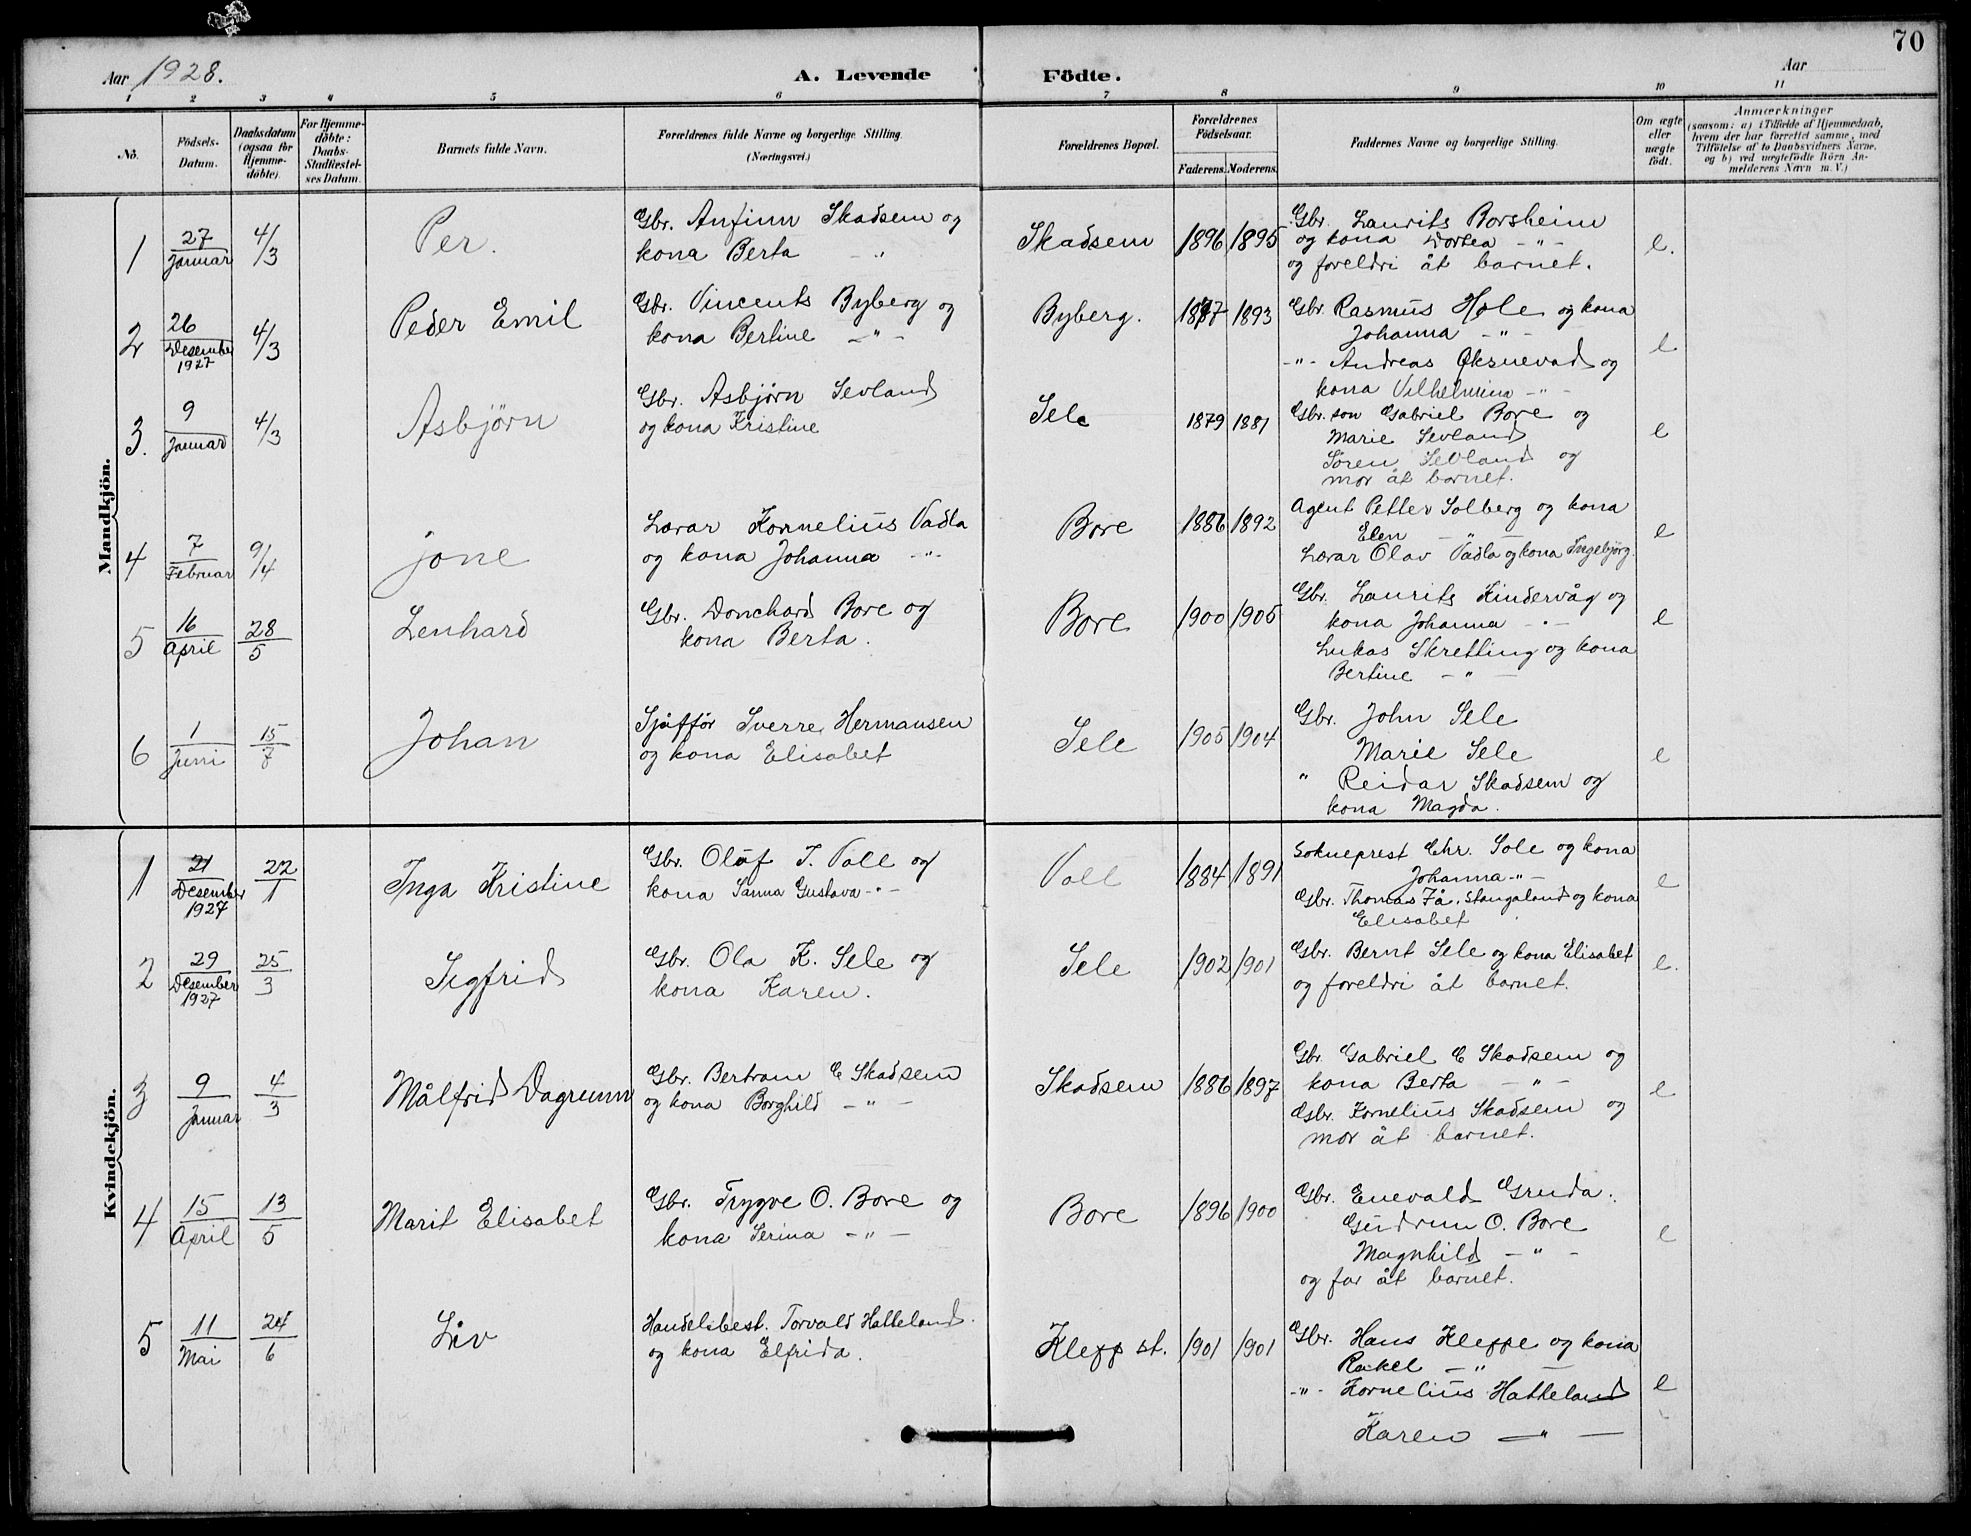 70
Aar 1928.
A. Levende Födte.
Aar
1 2 3 4 5 6 7 8 9 10 11
No.
Födsels-Datum.
Daabsdatum (ogsaa for Hjemme-döbte).
For Hjemme-döbte: Daabs-Stadfæstel-ses Datum.
Barnets fulde Navn.
Forældrenes fulde Navne og borgerlige Stilling. (Næringsvei.)
Forældrenes Bopæl.
Forældrenes Födselsaar.
Faderens. Moderens.
Faddernes Navne og borgerlige Stilling.
Om ægte eller uægte födt.
Anmærkninger
(saasom: a) i Tilfælde af Hjemmedaab,
hvem der har forrettet samme, med
Tilföielse af to Daabsvidners Navne,
og b) ved uægtefödte Börn An-
melderens Navn m. V.)
Mandkjön.
1 27 Januar 4/3 Per. Gbr. Anfinn Skadsem og
kona Berta - " Skadsem 1896 1895 Gbr. Laurits Borsheim
og kona Dortea - " -
og foreldri åt barnet. e.
2 26 Desember 1927 4/3 Peder Emil Gbr. Vincents Byberg og
kona Bertine - " - Byberg. 1887 1893 Gbr. Rasmus Hole og kona
Johanna - " -
- " - Andreas Øksnevad og
kona Vilhelmina - " - e
3. 9 Januar 4/3 Asbjörn Gbr. Asbjörn Sevland
og kona Kristine Sele 1879 1881 Gbr. son Gabriel Bore og
Marie Sevland
Sören Sevland og
mor åt barnet. e
4 7 Februar 9/4 Jone Lærar Kornelius Vadla
og kona Johanna - " - Bore 1886 1892 Agent Petter Solberg og kona
Elen - " -
Lærar Olav Vadla og kona Ingebjörg. e
5 16 April 28/5 Lenhard Gbr. Donchard Bore og
kona Berta. Bore 1900 1905 Gbr. Laurits Kindervåg og
kona Johanna - " -
Lukas Skretting og kona
Bertine - " - e
6 1 Juni 15/7 Johan Sjåfför Sverre Hermansen
og kona Elisabet Sele 1905 1904 Gbr. John Sele
Marie Sele
" Reidar Skadsem og
kona Magda. e
Kvindekjön.
1 21 Desember 1927 22/1 Inga Kristine Gbr. Oluf T. Voll og
kona Sanna Gustava - " - Voll 1884 1891 Sokneprest Chr. Sole og kona
Johanna - " -
Gbr. Thomas Få. Stangaland og kona
Elisabet e
2 29 Desember 1927 25/3 Sigfrid Gbr. Ola K. Sele og
kona Karen. Sele 1902 1901 Gbr. Bernt Sele og kona Elisabet
og foreldri åt barnet. e.
3 9 Januar 4/3 Målfrid Dagrunn Gbr. Bertram E Skadsem
og kona Borghild - " - Skadsem 1886 1897 Gbr. Gabriel E Skadsem og
kona Berta - " -
Gbr. Kornelius Skadsem og
mor åt barnet. e
4 15 April 13/5 Marit Elisabet Gbr. Trygve O. Bore og
kona Serina - " - Bore 1896 1900 Gbr. Enevald Gruda.
Gudrun O. Bore
Magnhild - " -
og far åt barnet. e
5 11 Mai 24/6 Liv Handelsbest. Torvald Hatteland
og kona Elfrida. Klepp st. 1901 1901 Gbr. Hans Kleppe og kona
Rakel - " -
- " - Kornelius Hatteland
Karen - " - e